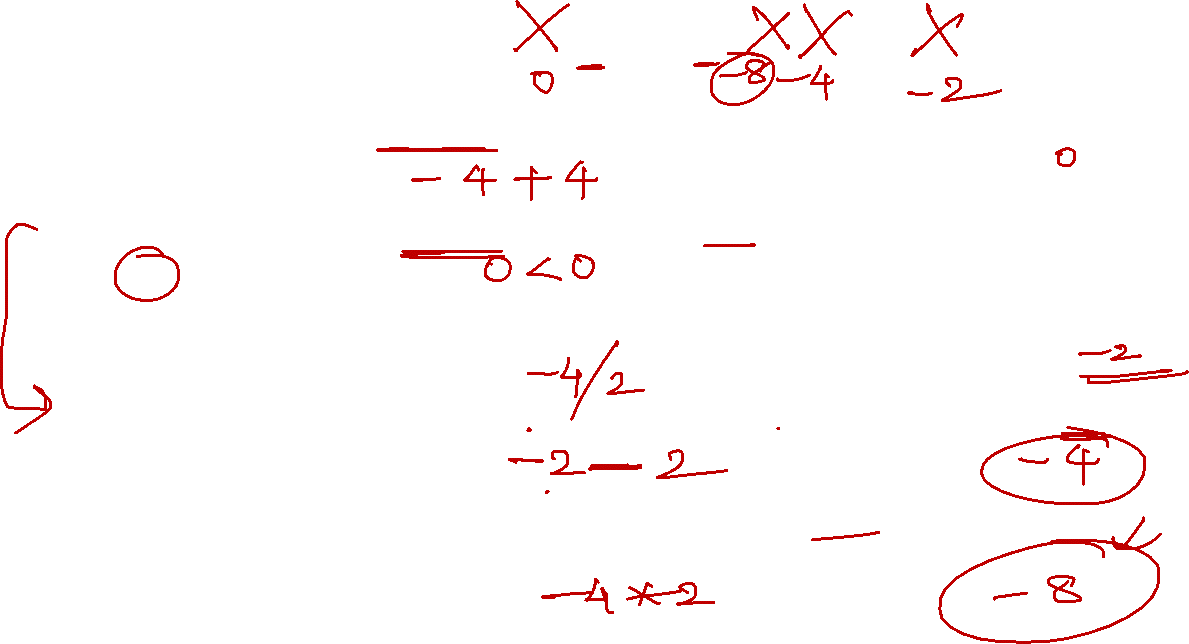 X X X X
0 - - -8 -4 -2
-4+4 0
0<0 -
-4/2 -2
-2-2 -4
-4*2 -8